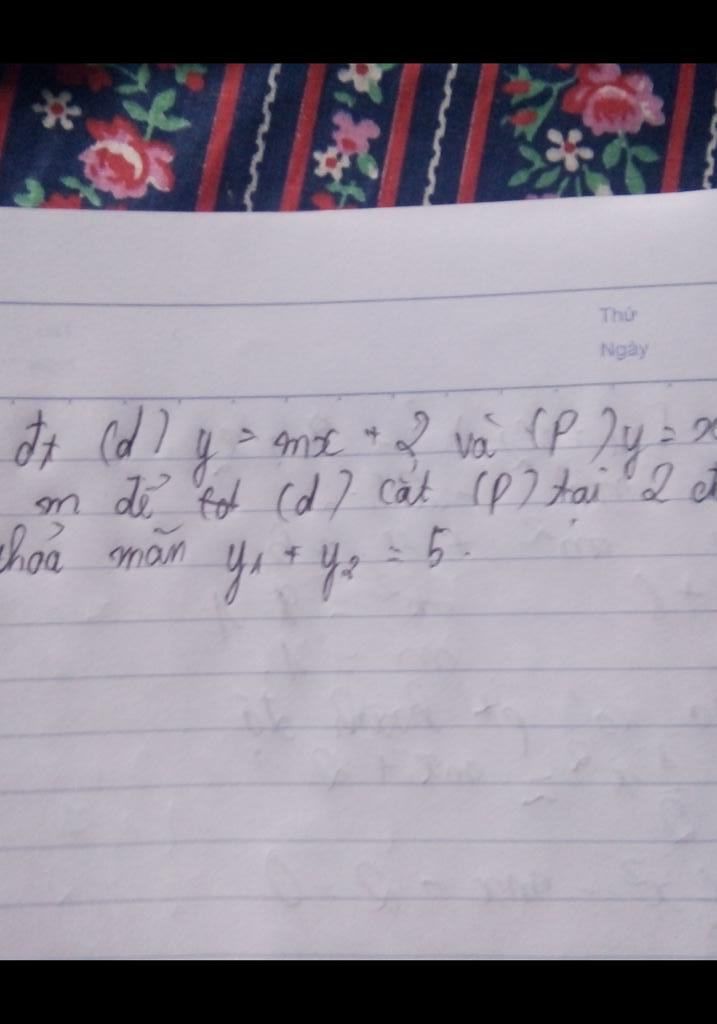 Thứ
Ngày
đt (d) y = mx + 2 và (P) y = x
m để (d) cắt (P) tại 2 đ
thoả mãn y₁ + y₂ = 5.